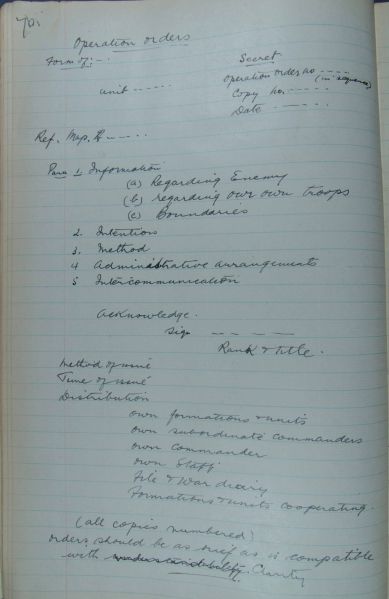 Operation orders
Form of:-
Secret
Operation order no ----
(in sequence)
unit ------
Copy no. ----
Date -----
Ref. Map. -----
Para 1. Information
(a) Regarding Enemy
(b) regarding our own troops
(c) Boundaries
2. Intentions
3. Method
4 Administrative arrangements
5 Intercommunication
Acknowledge.
Sign - - - - -
Rank & Title.
Method of issue
Time of issue
Distribution
own formations & units
own subordinate commanders
own commander
own Staff
File & War diary
Formations & units cooperating.
(all copies numbered)
Orders should be as brief as is compatible
with understandability. Clarity